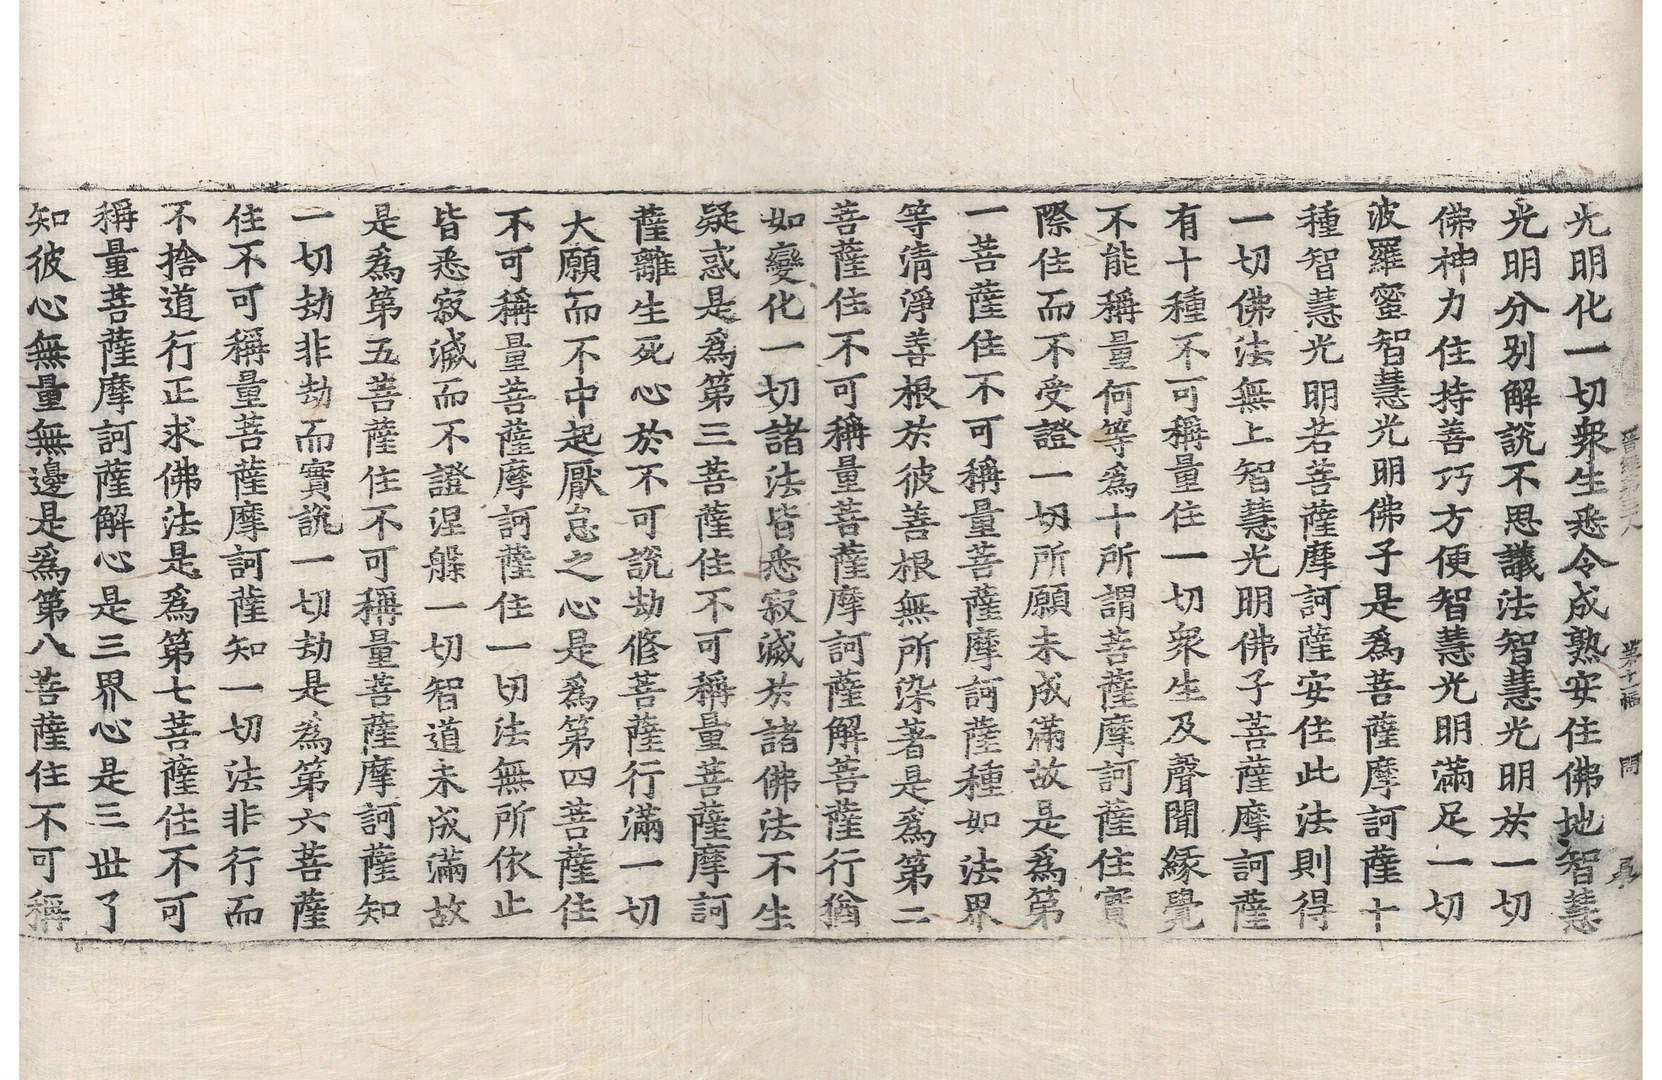 晉經第三八　第十幅　問　承
光明化一切衆生悉令成熟安住佛地智慧
光明分別解說不思議法智慧光明於一切
佛神力住持善巧方便智慧光明滿足一切
波羅蜜智慧光明佛子是爲菩薩摩訶薩十
種智慧光明若菩薩摩訶薩安住此法則得
一切佛法無上智慧光明佛子菩薩摩訶薩
有十種不可稱量住一切衆生及聲聞緣覺
不能稱量何等爲十所謂菩薩摩訶薩住實
際住而不受證一切所願未成滿故是爲第
一菩薩住不可稱量菩薩摩訶薩種如法界
等清淨善根於彼善根無所染著是爲第二
菩薩住不可稱量菩薩摩訶薩解菩薩行猶
如變化一切諸法皆悉寂滅於諸佛法不生
疑惑是爲第三菩薩住不可稱量菩薩摩訶
薩離生死心於不可說劫修菩薩行滿一切
大願而不中起厭怠之心是爲第四菩薩住
不可稱量菩薩摩訶薩住一切法無所依止
皆悉寂滅而不證涅槃一切智道未成滿故
是爲第五菩薩住不可稱量菩薩摩訶薩知
一切劫非劫而實說一切劫是爲第六菩薩
住不可稱量菩薩摩訶薩知一切法非行而
不捨道行正求佛法是爲第七菩薩住不可
稱量菩薩摩訶薩解心是三界心是三世了
知彼心無量無邊是爲第八菩薩住不可稱